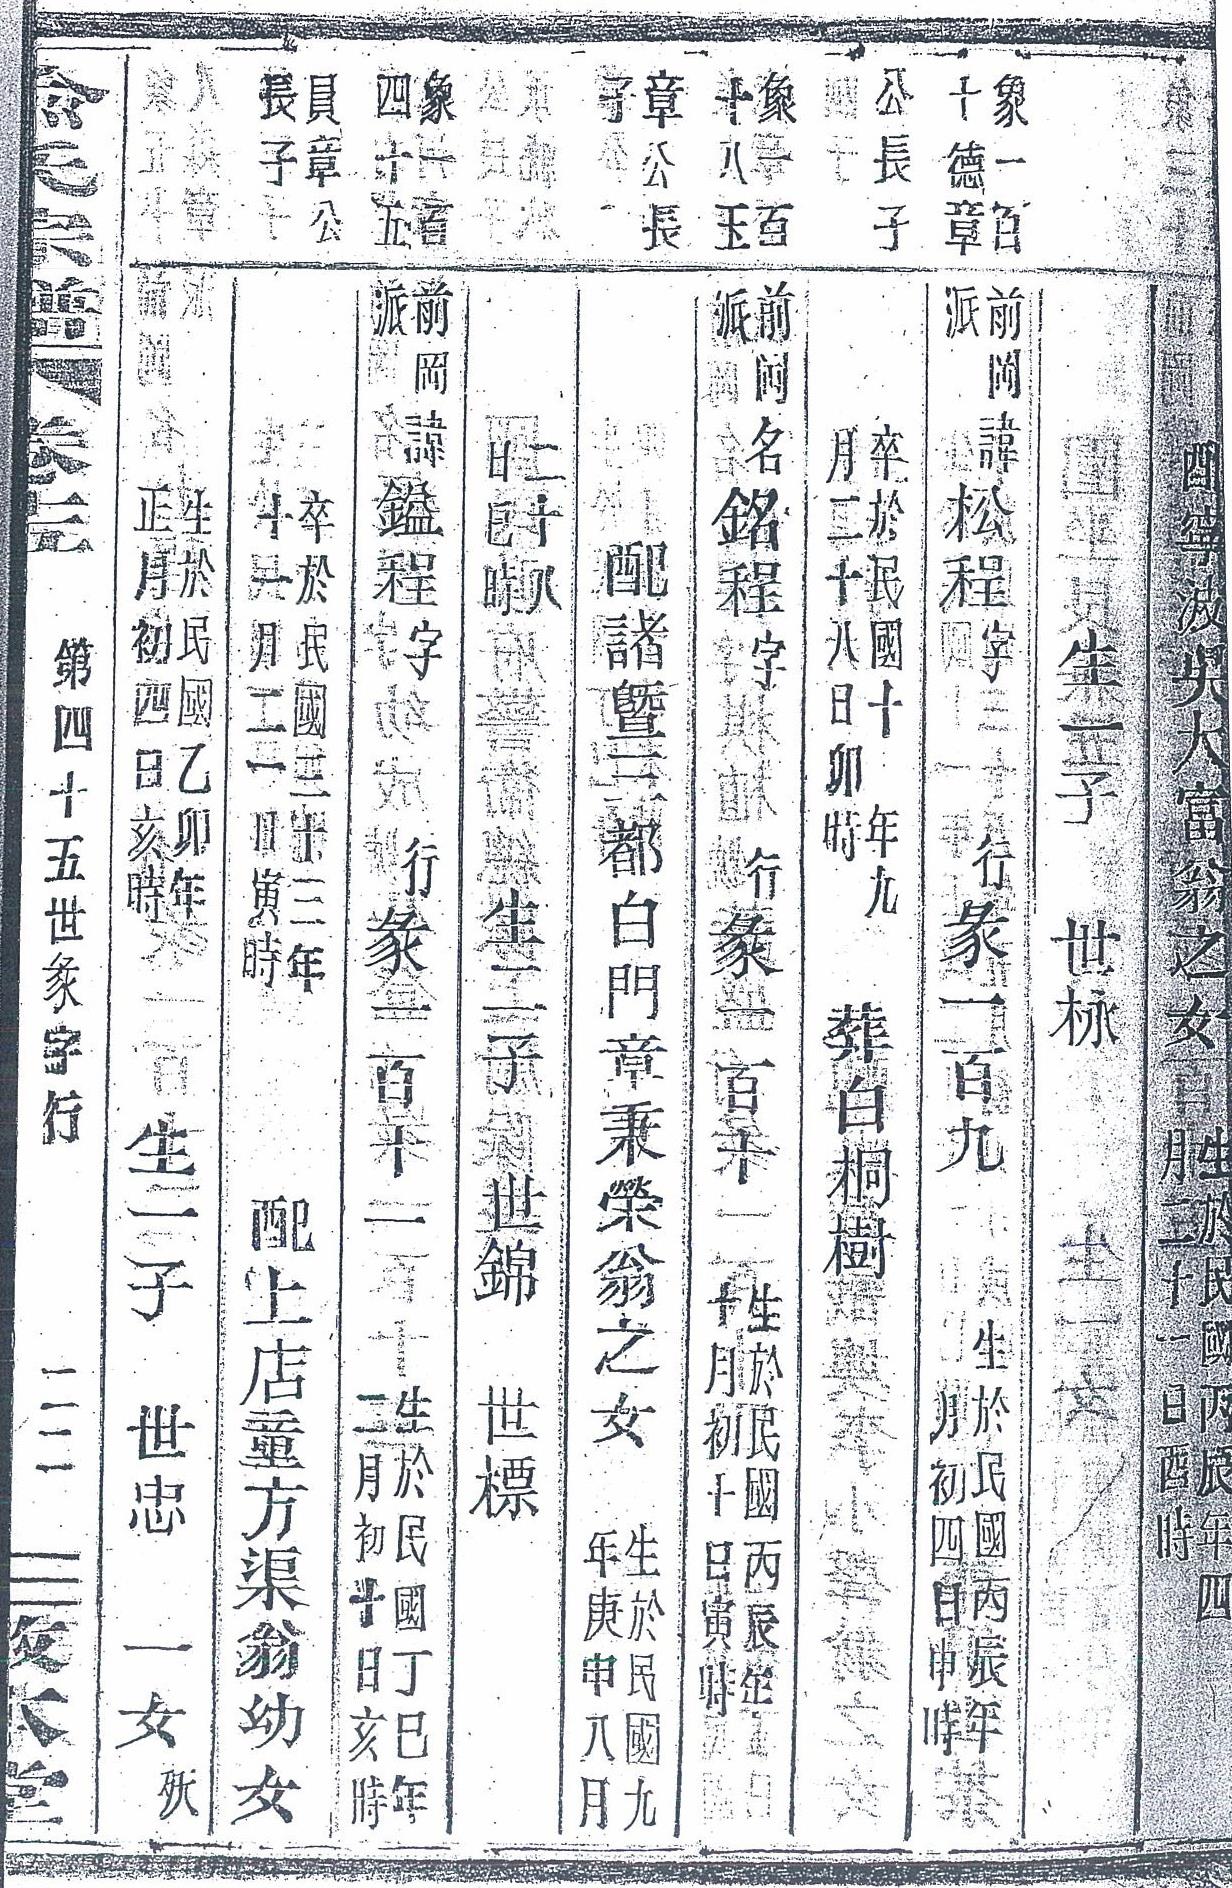 配寧波吳大富翁之女
生於民國丙辰年四
月二十一日酉時
生一子 世栐
象一百
十德章
公長子
前岡
派
諱松程字 行彖一百九
生於民國丙辰年
月初四日申時
卒於民國十 年九
月二十八日卯時
葬白桐樹
象一百
十八玉
章公長
子
前岡
派
名銘程字 行彖一百十
生於民國丙辰年
十月初十日寅時
配諸暨三都白門章秉榮翁之女
生於民國九
年庚申八月
二十八
日巳時
生二子 世錦 世標
象一百
四十五
員章公
長子
前岡
派
諱鎰程字 行彖一百十一
生於民國丁巳年
二月初十日亥時
卒於民國三十三年
十一月二一日寅時
配上店童方渠翁幼女
生於民國乙卯年
正月初四日亥時
生二子 世忠 一女
俞氏宗譜 卷三 第四十五世彖字行 一一一 敦本堂